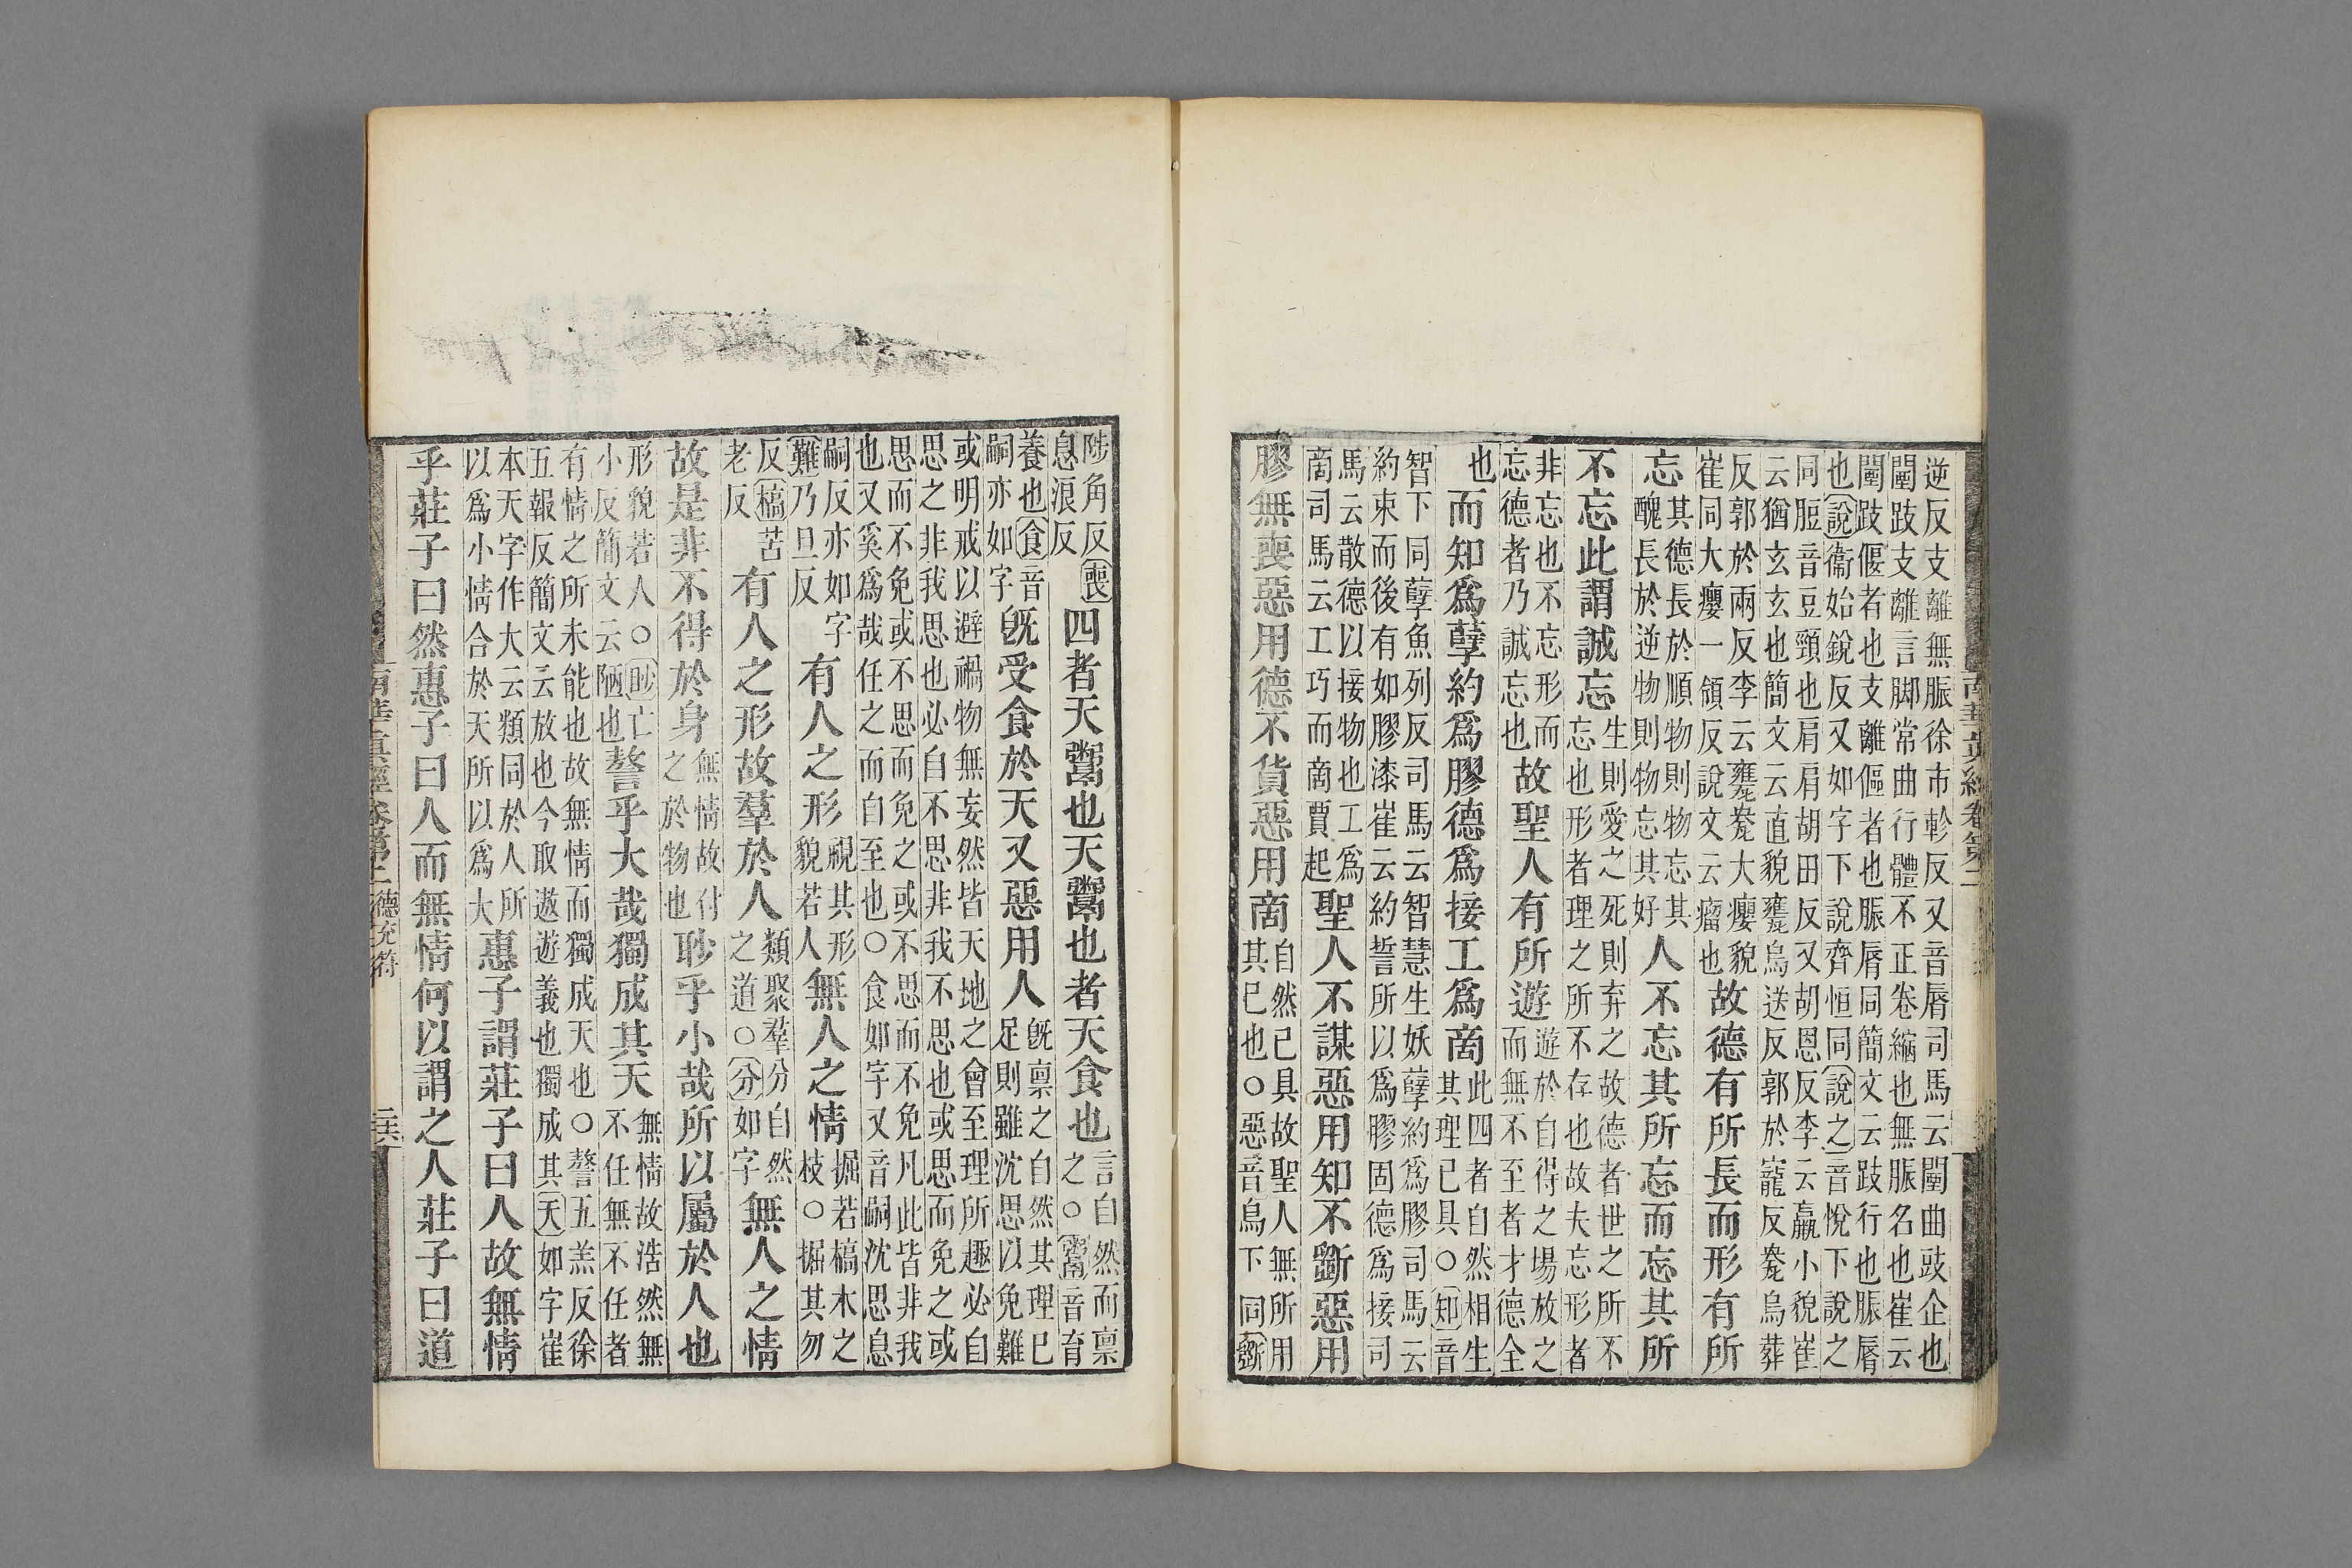 逆反支離無脤徐市軫反又音脣司馬云闉曲豉企也
闉跂支離言脚常曲行體不正卷縮也無脤名也崔云
闉跂偃者也支離傴者也脤脣同簡文云跂行也脤脣
也說衞始銳反又如字下說齊恒同說之音悅下說之
同脰音豆頸也肩肩胡田反又胡恩反李云羸小貌崔
云猶玄玄也簡文云直貌甕烏送反郭於寵反㼜烏葬
反郭於兩反李云甕㼜大癭貌
崔同大癭一領反說文云瘤也
故德有所長而形有所
忘
其德長於順物則物忘其
醜長於逆物則物忘其好
人不忘其所忘而忘其所
不忘此謂誠忘
生則愛之死則弃之故德者世之所不
忘也形者理之所不存也故夫忘形者
非忘也不忘形而
忘德者乃誠忘也
故聖人有所遊
遊於自得之場放之
而無不至者才德全
也
而知爲孽約爲膠德爲接工爲商
此四者自然相生
其理已具○知音
智下同孽魚列反司馬云智慧生妖孽約爲膠司馬云
約束而後有如膠漆崔云約誓所以爲膠固德爲接司
馬云散德以接物也工爲
商司馬云工巧而商賈起
聖人不謀惡用知不斵惡用
膠無喪惡用德不貨惡用商
自然已具故聖人無所用
其已也○惡音烏下同斵
陟角反喪
息浪反
四者天鬻也天鬻也者天食也
言自然而禀
之○鬻音育
養也食音
嗣亦如字
旣受食於天又惡用人
旣禀之自然其理已
足則雖沈思以免難
或明戒以避禍物無妄然皆天地之會至理所趣必自
思之非我思也必自不思非我不思也或思而免之或
思而不免或不思而免之或不思而不免凡此皆非我
也又奚爲哉任之而自至也○食如字又音嗣沈思息
嗣反亦如字
難乃旦反
有人之形
視其形
貌若人
無人之情
掘若槁木之
枝○掘其勿
反槁苦
老反
有人之形故羣於人
類聚羣分自然
之道○分如字
無人之情
故是非不得於身
無情故付
之於物也
眇乎小哉所以屬於人也
形貌若人○眇亡
小反簡文云陋也
謷乎大哉獨成其天
無情故浩然無
不任無不任者
有情之所未能也故無情而獨成天也○謷五羔反徐
五報反簡文云放也今取遨遊義也獨成其天如字崔
本天字作大云類同於人所
以爲小情合於天所以爲大
惠子謂莊子曰人故無情
乎莊子曰然惠子曰人而無情何以謂之人莊子曰道
南華真經卷第二 德充符